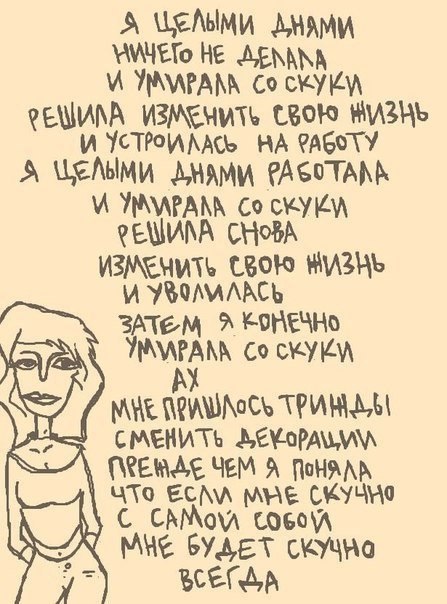 Я ЦЕЛЫМИ ДНЯМИ
НИЧЕГО НЕ ДЕЛАЛА
И УМИРАЛА СО СКУКИ
РЕШИЛА ИЗМЕНИТЬ СВОЮ ЖИЗНЬ
И УСТРОИЛАСЬ НА РАБОТУ
Я ЦЕЛЫМИ ДНЯМИ РАБОТАЛА
И УМИРАЛА СО СКУКИ
РЕШИЛА СНОВА
ИЗМЕНИТЬ СВОЮ ЖИЗНЬ
И УВОЛИЛАСЬ
ЗАТЕМ Я КОНЕЧНО
УМИРАЛА СО СКУКИ
АХ
МНЕ ПРИШЛОСЬ ТРИЖДЫ
СМЕНИТЬ ДЕКОРАЦИИ
ПРЕЖДЕ ЧЕМ Я ПОНЯЛА
ЧТО ЕСЛИ МНЕ СКУЧНО
С САМОЙ СОБОЙ
МНЕ БУДЕТ СКУЧНО
ВСЕГДА